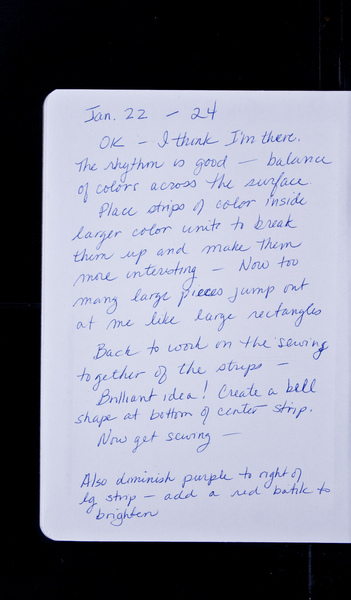 Jan. 22 - 24
OK - I think I'm there.
The rhythm is good - balance
of colors across the surface.
Place strips of color inside
larger color units to break
them up and make them
more interesting - Now too
many large pieces jump out
at me like large rectangles
Back to work on the sewing
together of the strips -
Brilliant idea! Create a bell
shape at bottom of center strip.
Now get sewing -
Also diminish purple to right of
lg strip - add a red batik to
brighten